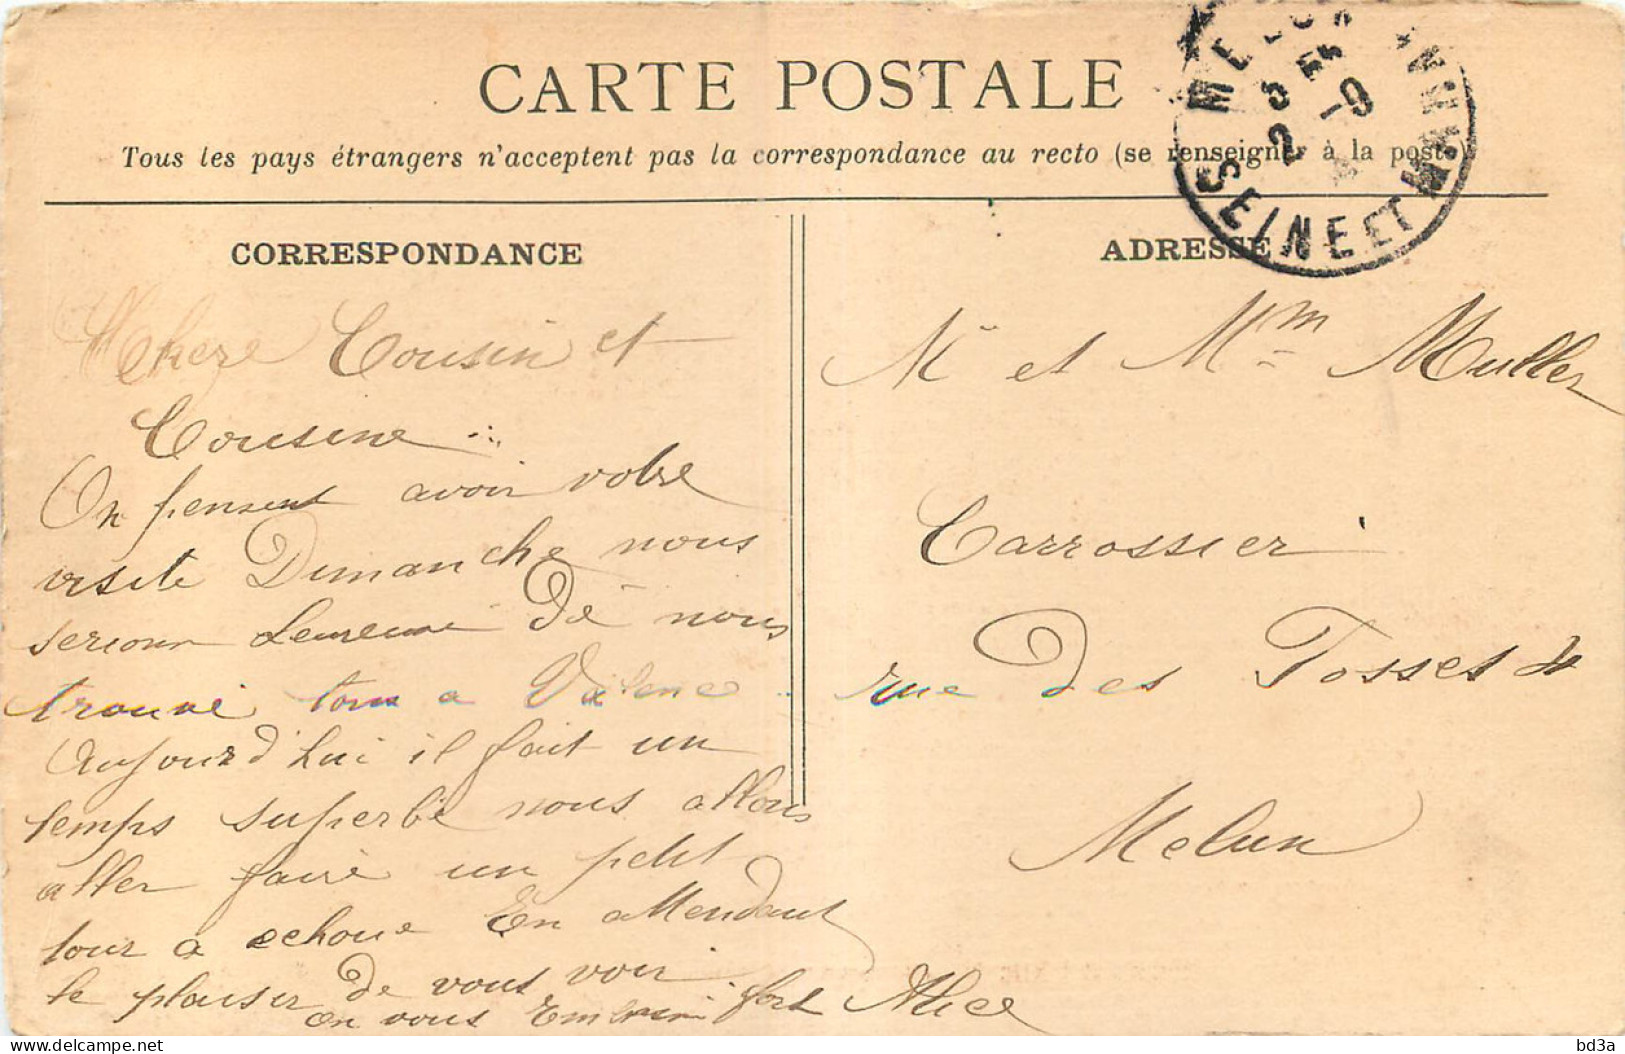 CARTE POSTALE
Tous les pays étrangers n'acceptent pas la correspondance au recto (se renseigner à la poste)
CORRESPONDANCE
Chere Cousin et
Cousine
On pensent avoir votre
visite Dimanche nous
serions de nous
trouvé tous a Valence
Aujourd'hui il fait un
temps superbe nous allons
aller faire un petit
tour a echoue En attendant
le plaisir de vous voir
on vous fort Alice
ADRESSE
MELUN
5E
2 -9
SEINE ET M
M et Mm Muller
Carrossier
rue des Fosses
Melun
delcampe.net
bd3a